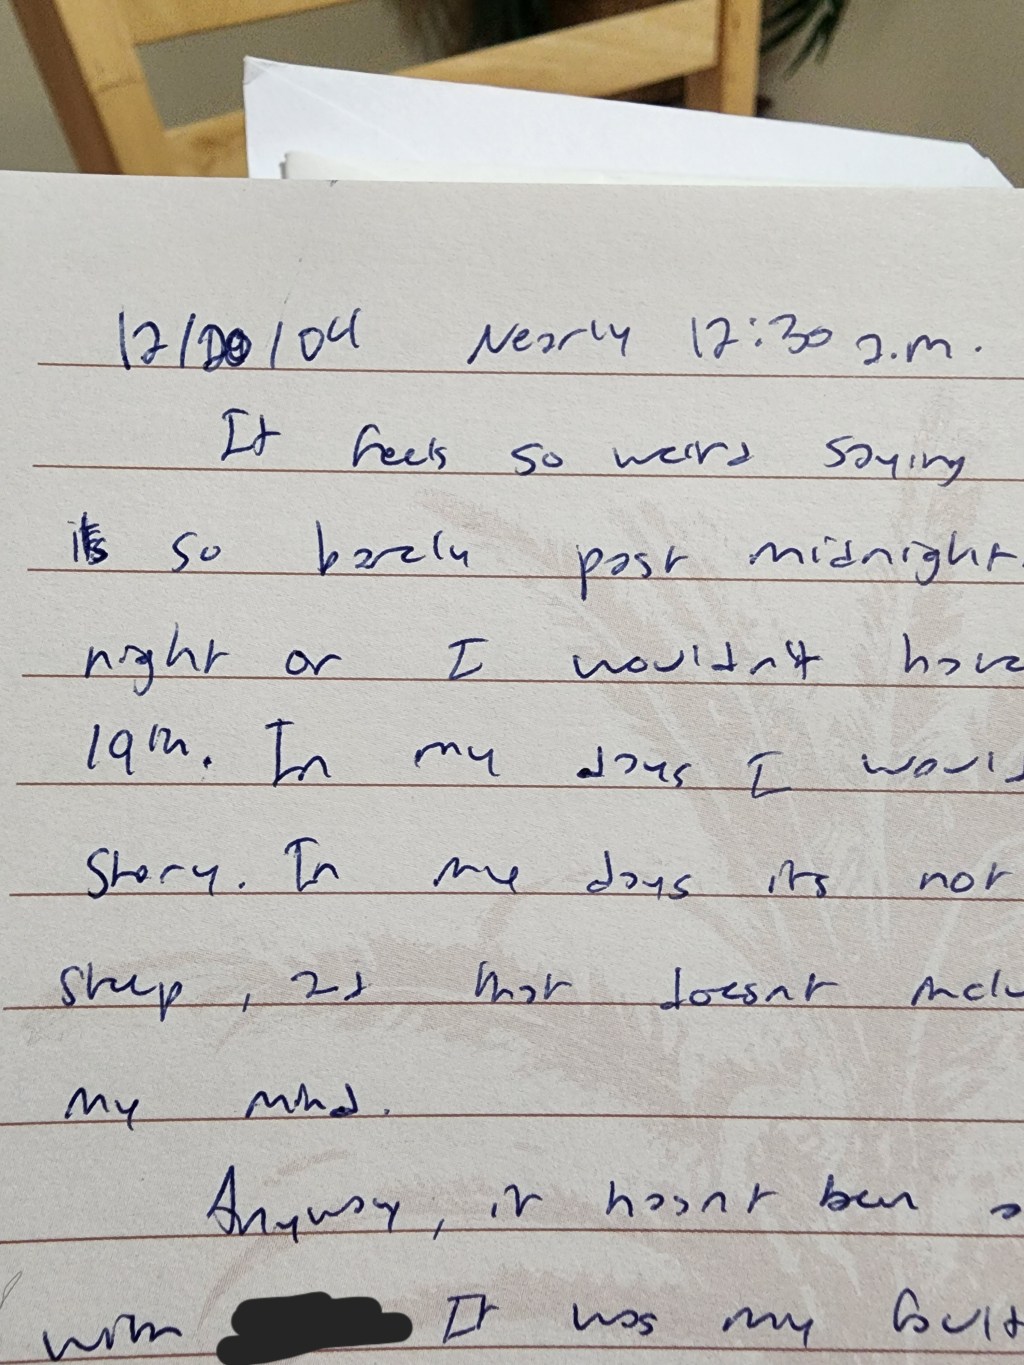 12/20/04 Nearly 12:30 a.m.
It feels so weird saying
it's so barely past midnight.
night or I wouldn't have
19th. In my days I would
story. In my days its not
sleep, as that doesnt inclu
my mind.
Anyway, it hasnt been a
with It was my fault